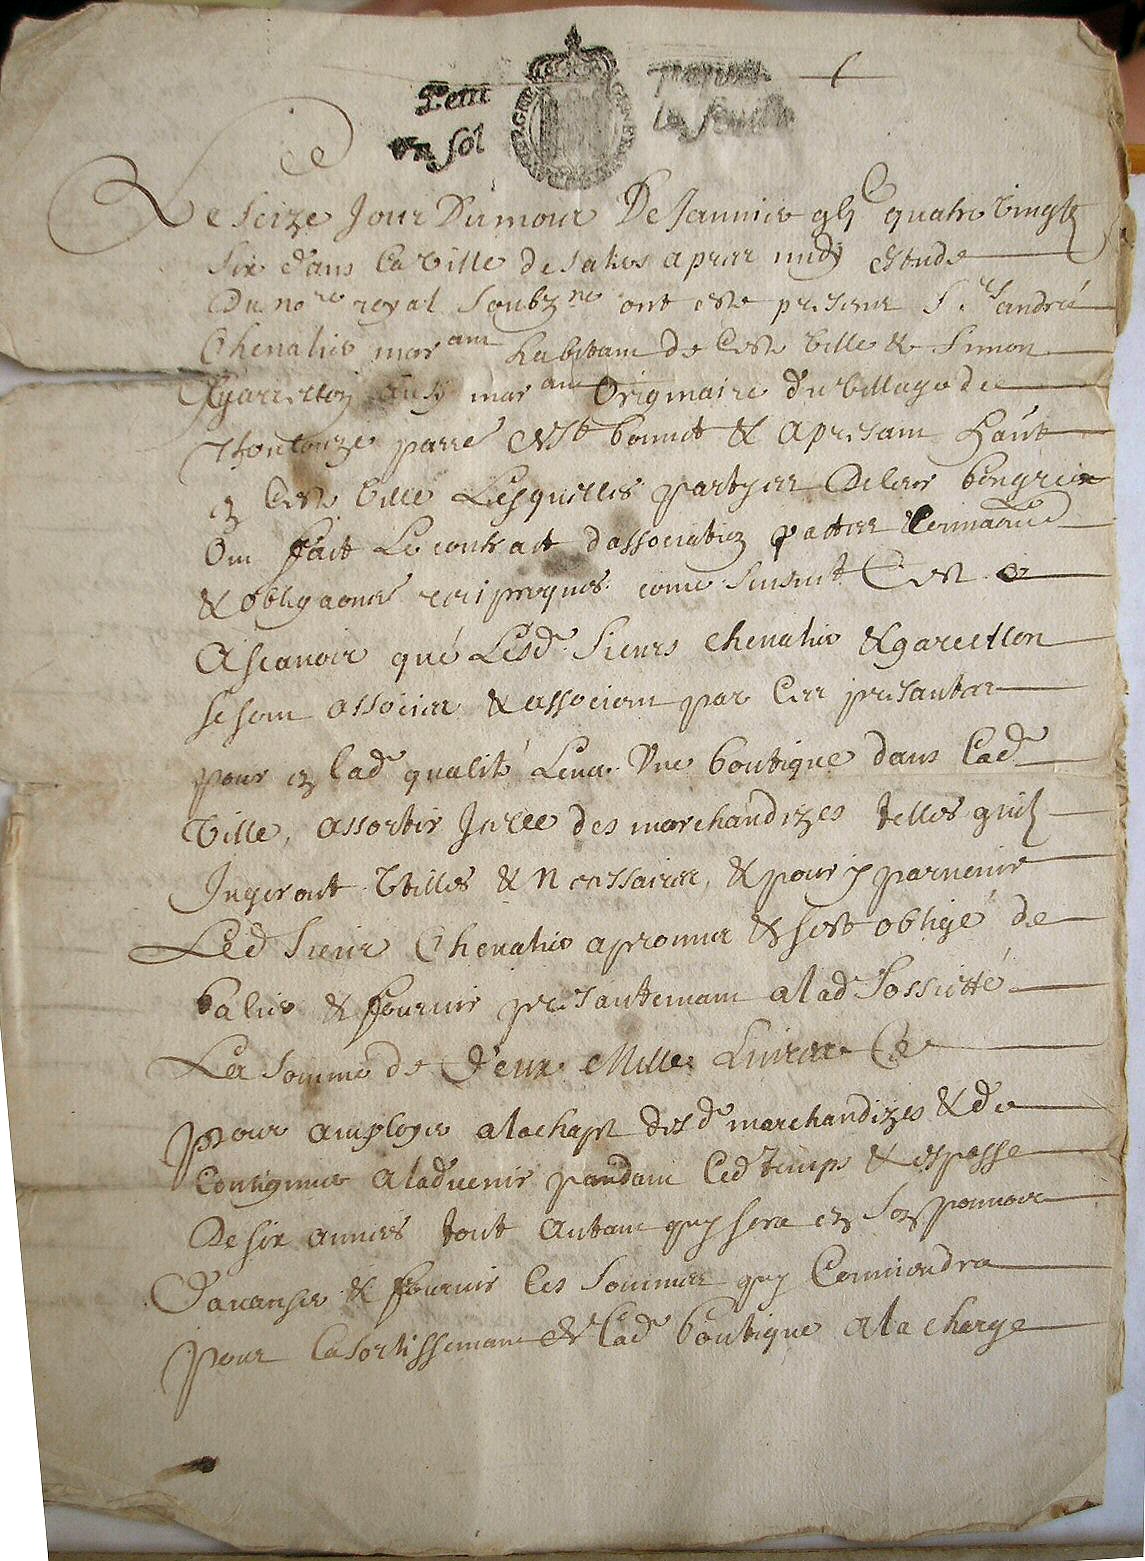 un sol
la feuille
Le seize Jour Dumois De Janvier quatre vingts
six dans la ville de apres midy estude
Du no.re royal soubz.ne ont este presens S.r andré
Chevalier mar.ant habitant de ceste ville & Simon
mar.ant Originaire du village de
& apresant
ceste ville Lesquelles partyes De leur bon gré
Ont fait Le contract dassociation pactes
& obligaons reciproques come sensuit Cest
Ascavoir que Lesd. Sieurs Chevalier & garcellon
se sont associes & associent par ces presantes
pour lad. qualité Une boutique dans lad.
Ville, assortir Icelle des marchandizes telles quil
Jugeront Utilles & Necessaires, & pour y parvenir
Led. Sieur Chevalier a promis & sest obligé de
balier & fournir presantemant a lad. Sossietté
La somme de Deux Mille Livres
pour amployer a lachapt desd. marchandizes & de
Continuer a ladvenir pandant led. temps & espasse
De six annees tout Autant quy sera en son pouvoir
Davanser & fournir les sommes quy Conviendra
pour lasortissemant lad. boutique a la charge